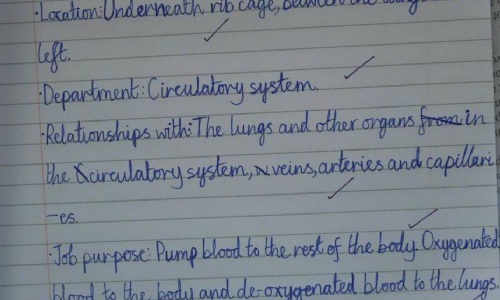 ·Location: Underneath rib cage, between the lungs
left.
·Department: Circulatory system.
·Relationships with: The lungs and other organs from in
the circulatory system, veins, arteries and capillari
-es.
·Job purpose: Pump blood to the rest of the body. Oxygenated
blood to the body and de-oxygenated blood to the lungs